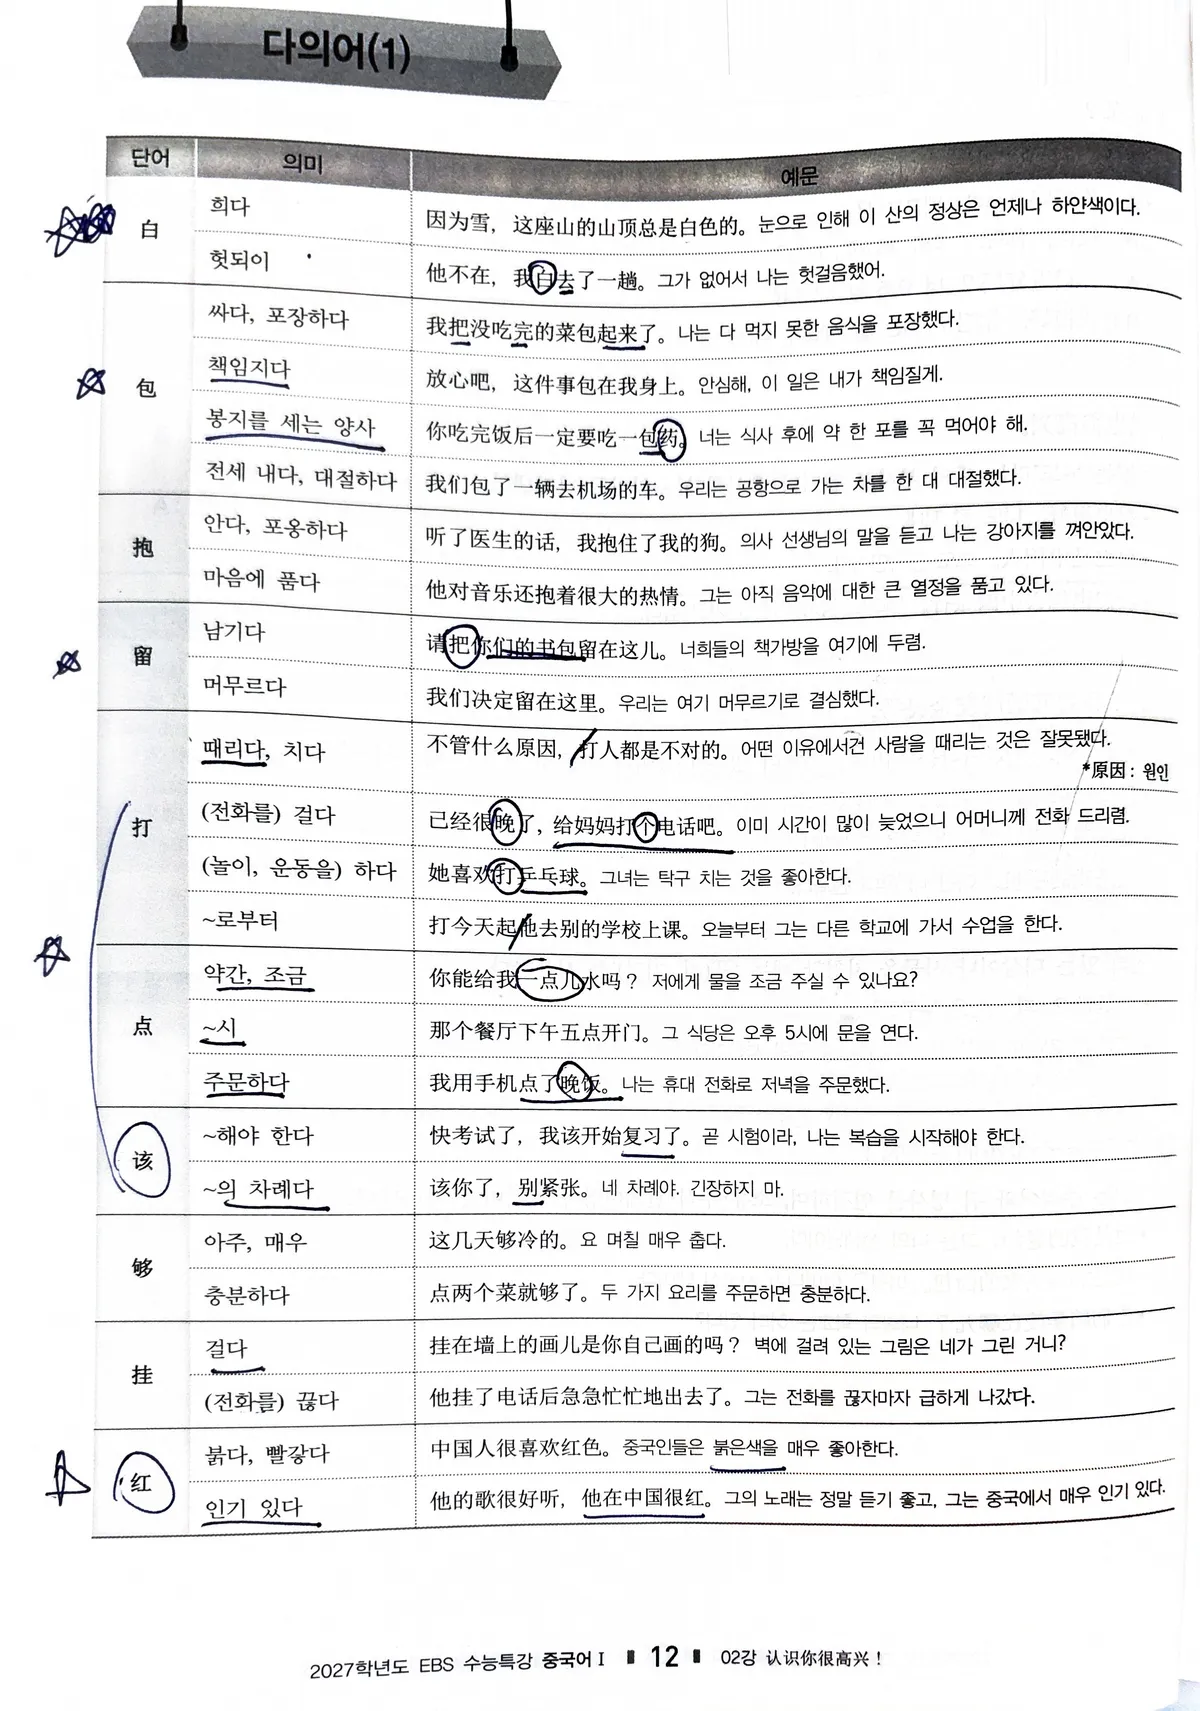 다의어(1)
단어 의미 예문
白
희다 因为雪，这座山的山顶总是白色的。눈으로 인해 이 산의 정상은 언제나 하얀색이다.
헛되이 他不在，我白去了一趟。그가 없어서 나는 헛걸음했어.
包
싸다, 포장하다 我把没吃完的菜包起来了。나는 다 먹지 못한 음식을 포장했다.
책임지다 放心吧，这件事包在我身上。안심해, 이 일은 내가 책임질게.
봉지를 세는 양사 你吃完饭后一定要吃一包药。너는 식사 후에 약 한 포를 꼭 먹어야 해.
전세 내다, 대절하다 我们包了一辆去机场的车。우리는 공항으로 가는 차를 한 대 대절했다.
抱
안다, 포옹하다 听了医生的话，我抱住了我的狗。의사 선생님의 말을 듣고 나는 강아지를 껴안았다.
마음에 품다 他对音乐还抱着很大的热情。그는 아직 음악에 대한 큰 열정을 품고 있다.
留
남기다 请把你们的书包留在这儿。너희들의 책가방을 여기에 두렴.
머무르다 我们决定留在这里。우리는 여기 머무르기로 결심했다.
打
때리다, 치다 不管什么原因，打人都是不对的。어떤 이유에서건 사람을 때리는 것은 잘못됐다.
*原因: 원인
(전화를) 걸다 已经很晚了，给妈妈打个电话吧。이미 시간이 많이 늦었으니 어머니께 전화 드리렴.
(놀이, 운동을) 하다 她喜欢打乒乓球。그녀는 탁구 치는 것을 좋아한다.
~로부터 打今天起他去别的学校上课。오늘부터 그는 다른 학교에 가서 수업을 한다.
点
약간, 조금 你能给我一点儿水吗？저에게 물을 조금 주실 수 있나요?
~시 那个餐厅下午五点开门。그 식당은 오후 5시에 문을 연다.
주문하다 我用手机点了晚饭。나는 휴대 전화로 저녁을 주문했다.
该
~해야 한다 快考试了，我该开始复习了。곧 시험이라, 나는 복습을 시작해야 한다.
~의 차례다 该你了，别紧张。네 차례야. 긴장하지 마.
够
아주, 매우 这几天够冷的。요 며칠 매우 춥다.
충분하다 点两个菜就够了。두 가지 요리를 주문하면 충분하다.
挂
걸다 挂在墙上的画儿是你自己画的吗？벽에 걸려 있는 그림은 네가 그린 거니?
(전화를) 끊다 他挂了电话后急急忙忙地出去了。그는 전화를 끊자마자 급하게 나갔다.
红
붉다, 빨갛다 中国人很喜欢红色。중국인들은 붉은색을 매우 좋아한다.
인기 있다 他的歌很好听，他在中国很红。그의 노래는 정말 듣기 좋고, 그는 중국에서 매우 인기 있다.
2027학년도 EBS 수능특강 중국어 I 12 02강 认识你很高兴！